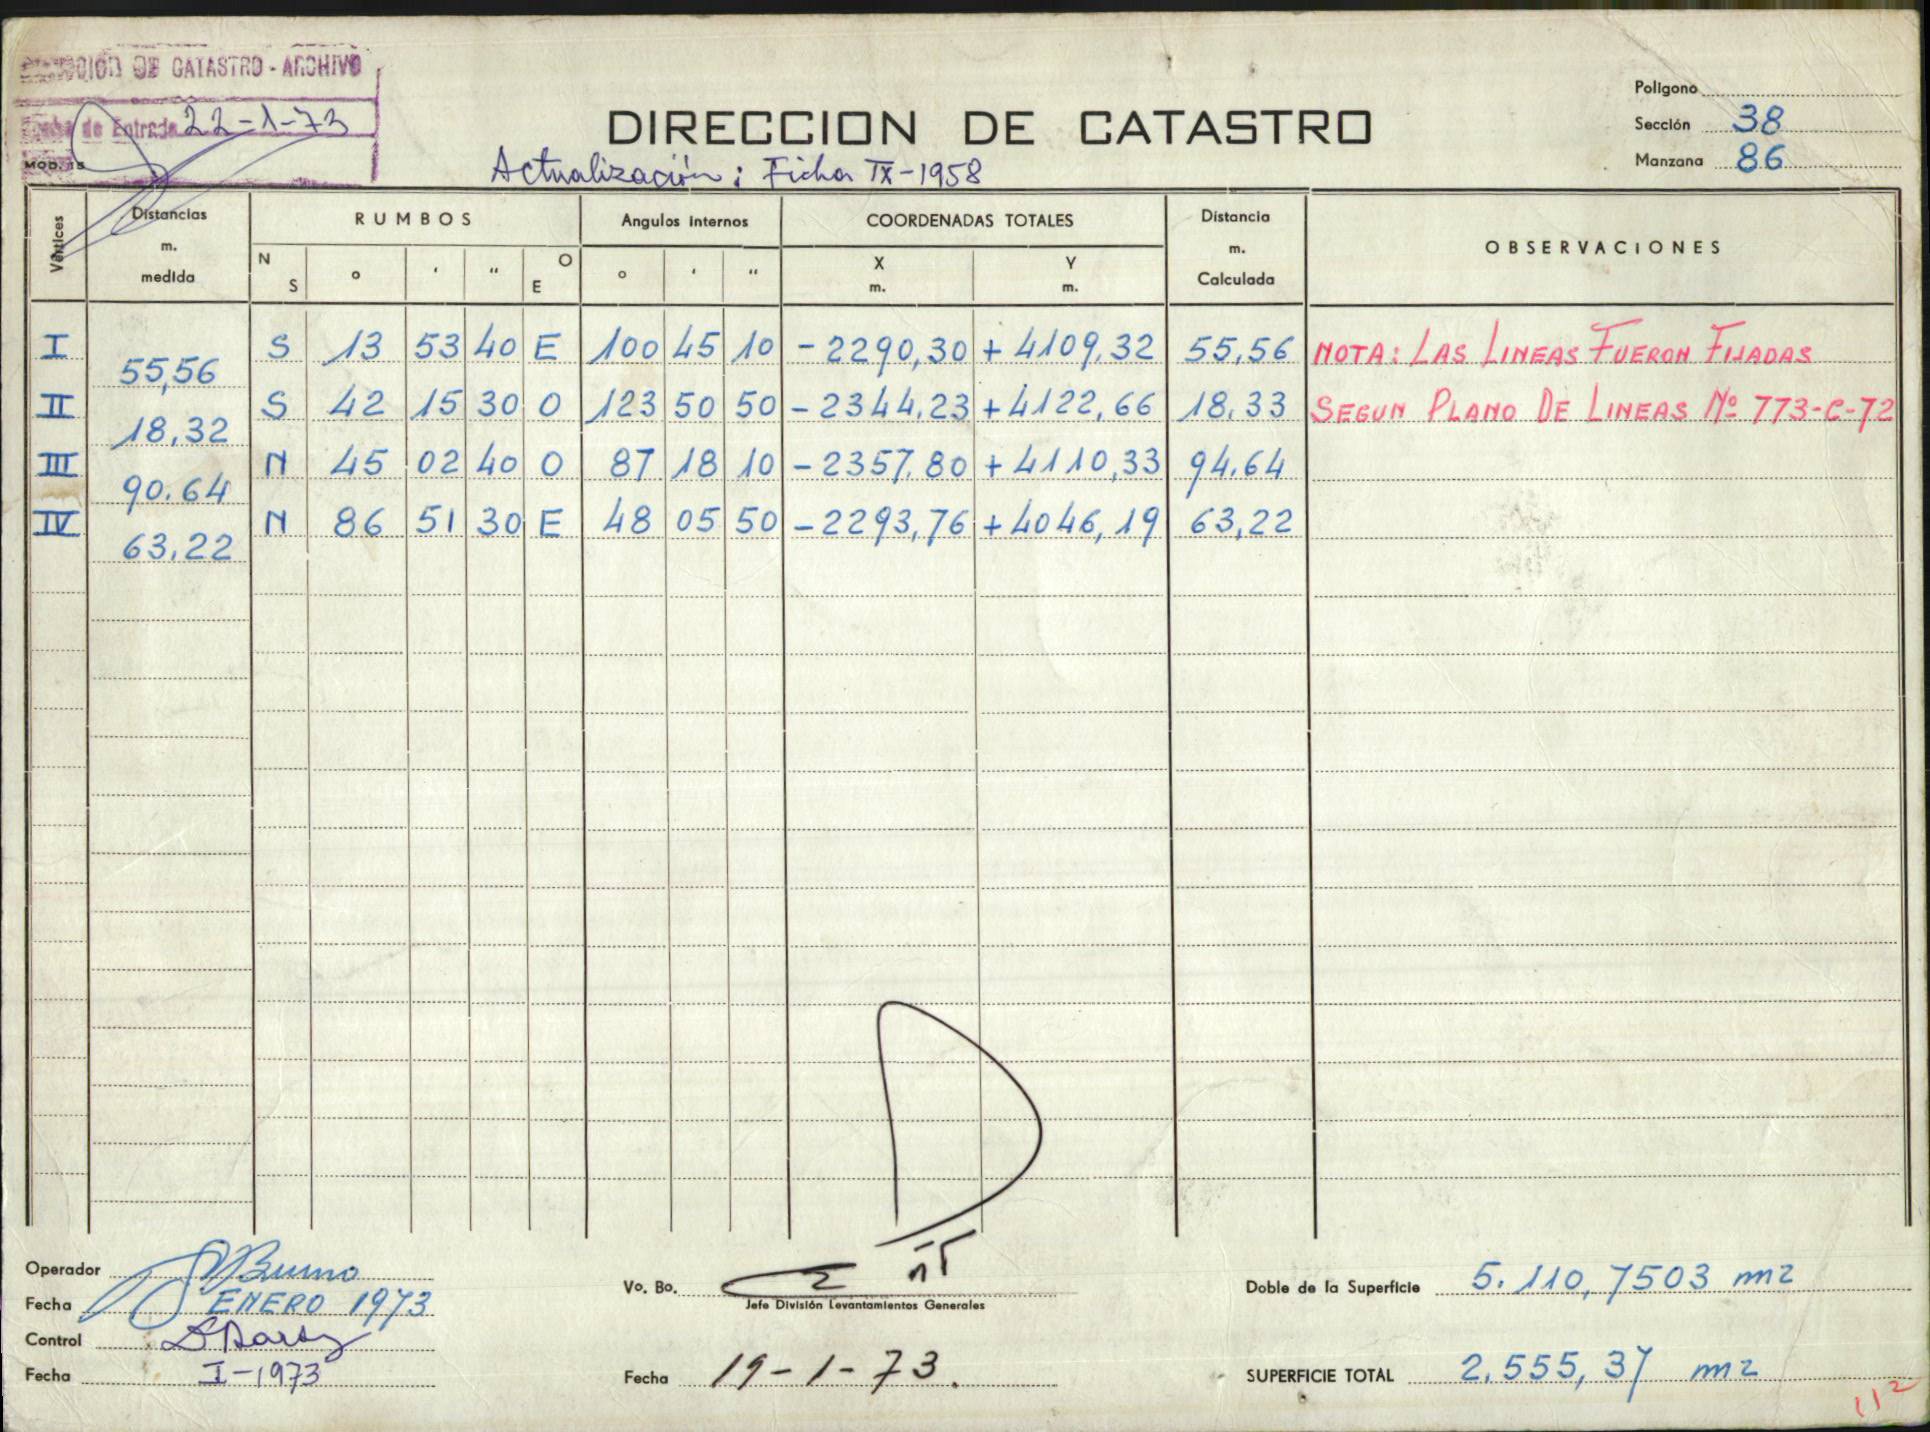 DE CATASTRO - ARCHIVO
de Entrada 22-1-73
MOD. 15
DIRECCION DE CATASTRO
Actualización: Ficha IX-1958
Poligono
Sección 38
Manzana 86
Vértices Distancias m. medida RUMBOS Angulos internos COORDENADAS TOTALES Distancia m. Calculada OBSERVACIONES
N S o ' " O E o ' " X m. Y m.
I S 13 53 40 E 100 45 10 -2290,30 +4109,32 55,56 NOTA: LAS LINEAS FUERON FIJADAS
55,56
II S 42 15 30 O 123 50 50 -2344,23 +4122,66 18,33 SEGUN PLANO DE LINEAS Nº 773-C-72
18,32
III N 45 02 40 O 87 18 10 -2357,80 +4110,33 94,64
90,64
IV N 86 51 30 E 48 05 50 -2293,76 +4046,19 63,22
63,22
Operador Bruno
Fecha ENERO 1973
Control
Fecha I-1973
Vo. Bo.
Jefe División Levantamientos Generales
Fecha 19-1-73.
Doble de la Superficie 5.110,7503 m2
SUPERFICIE TOTAL 2.555,37 m2
112